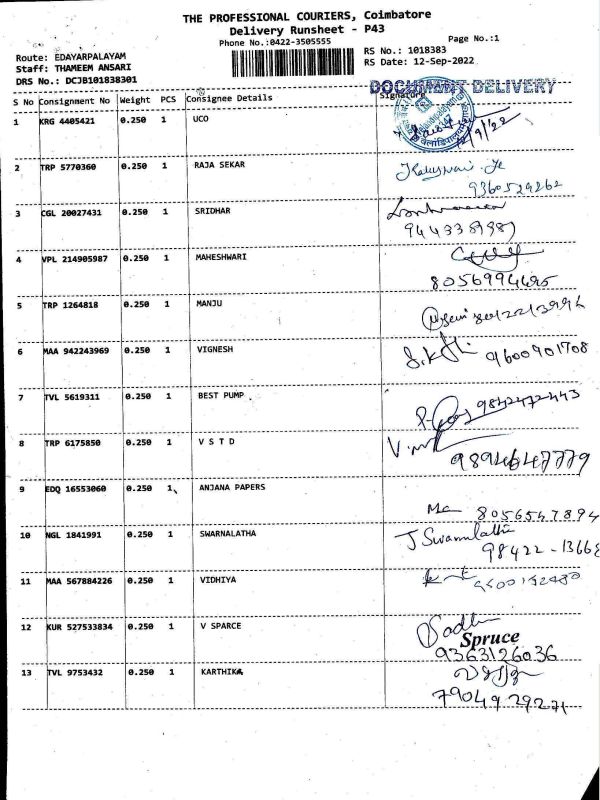 THE PROFESSIONAL COURIERS, Coimbatore
Delivery Runsheet - P43
Phone No.:0422-3505555
Page No.:1
Route: EDAYARPALAYAM
RS No.: 1018383
Staff: THAMEEM ANSARI
RS Date: 12-Sep-2022
DRS No.: DCJB101838301
DOCUMENT DELIVERY
S No Consignment No Weight PCS Consignee Details Signature
1 KRG 4405421 0.250 1 UCO
2 TRP 5770360 0.250 1 RAJA SEKAR
9360529262
3 CGL 20027431 0.250 1 SRIDHAR
4 VPL 214905987 0.250 1 MAHESHWARI
8056994695
5 TRP 1264818 0.250 1 MANJU
6 MAA 942243969 0.250 1 VIGNESH 9600901708
7 TVL 5619311 0.250 1 BEST PUMP 9842472443
8 TRP 6175850 0.250 1 V S T D
9 EDQ 16553060 0.250 1 ANJANA PAPERS
8056547894
10 NGL 1841991 0.250 1 SWARNALATHA J Swarnalatha
98422-13668
11 MAA 567884226 0.250 1 VIDHIYA
12 KUR 527533834 0.250 1 V SPARCE
Spruce
9363126036
13 TVL 9753432 0.250 1 KARTHIKA
7904929271